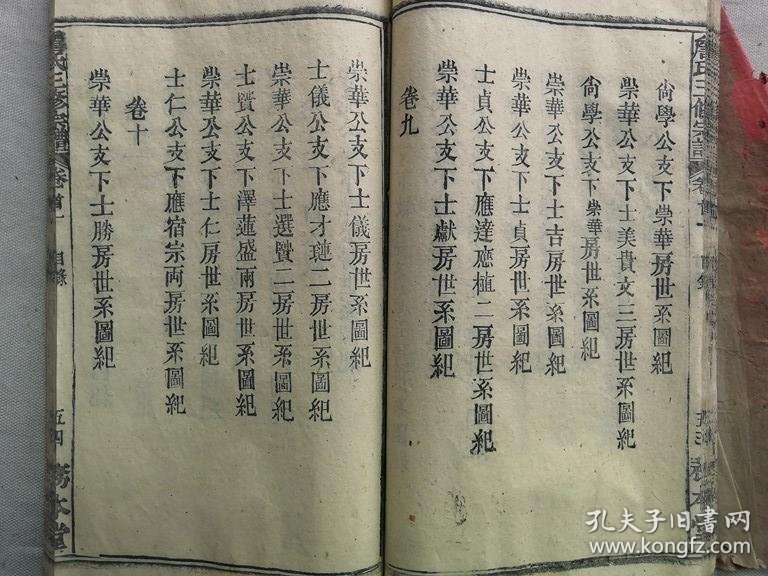 尙學公支下崇華房世系圖紀
崇華公支下士美貴文三房世系圖紀
尙學公支下崇華房世系圖紀
崇華公支下士吉房世系圖紀
崇華公支下士貞房世系圖紀
士貞公支下應達應植二房世系圖紀
崇華公支下士獻房世系圖紀
卷九
崇華公支下士儀房世系圖紀
士儀公支下應才璉二房世系圖紀
崇華公支下士選贒二房世系圖紀
士贒公支下澤蓮盛兩房世系圖紀
崇華公支下士仁房世系圖紀
士仁公支下應宿宗兩房世系圖紀
卷十
崇華公支下士勝房世系圖紀
氏三修宗譜
卷首一
目錄
五四
務本堂
孔夫子旧书网
www.kongfz.com